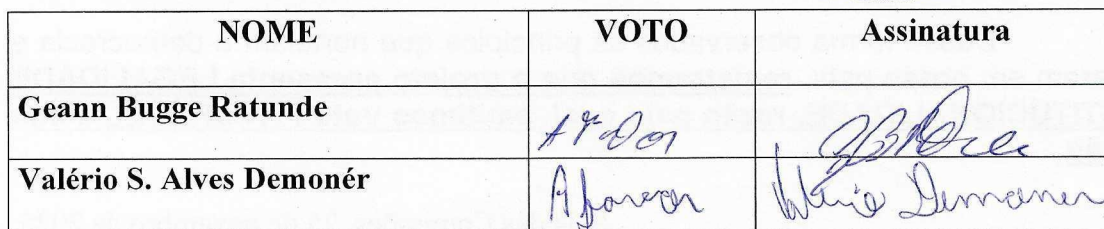 NOME VOTO Assinatura
Geann Bugge Ratunde
Valério S. Alves Demonér Afavor Valério Demoner